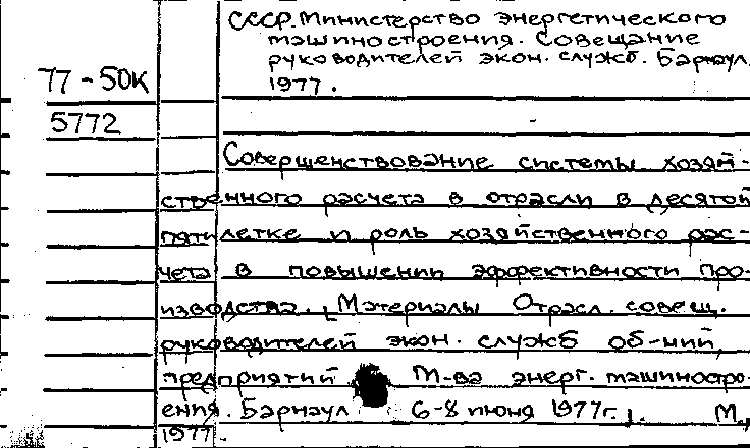 СССР. Министерство энергетического
машиностроения. Совещание
руководителей экон. служб. Барнаул.
1977.
77-50К
5772
Совершенствование системы хозяй-
ственного расчета в отрасли в десятой
пятилетке и роль хозяйственного рас-
чета в повышении эффективности про-
изводства. [Материалы Отрасл. совещ.
руководителей экон. служб об-ний,
предприятий М-ва энерг. машиностро-
ения. Барнаул 6-8 июня 1977г.]. М.,
1977.